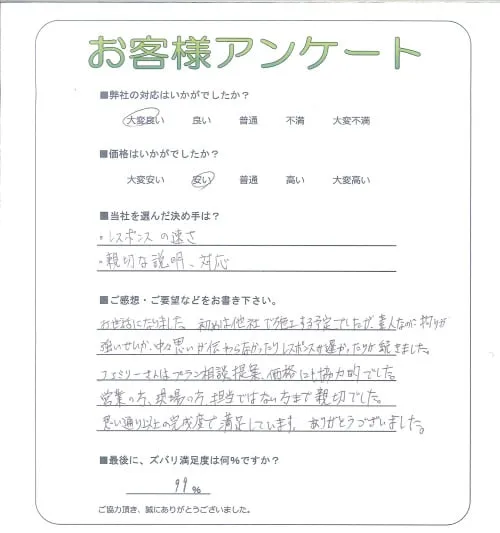 お客様アンケート
■弊社の対応はいかがでしたか？
大変良い 良い 普通 不満 大変不満
■価格はいかがでしたか？
大変安い 安い 普通 高い 大変高い
■当社を選んだ決め手は？
・レスポンスの速さ
・親切な説明、対応
■ご感想・ご要望などをお書き下さい。
お世話になりました。初めは他社で施工する予定でしたが、素人なのに拘りが
強いせいか、中々思いが伝わらなかったりレスポンスが遅かったりが続きました。
ファミリーさんはプラン相談、提案、価格にも協力的でした。
営業の方、現場の方、担当ではない方まで親切でした。
思い通り以上の完成度で満足しています。ありがとうございました。
■最後に、ズバリ満足度は何％ですか？
99％
ご協力頂き、誠にありがとうございました。